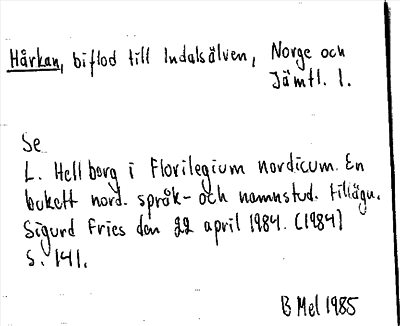 Hårkan, biflod till Indalsälven, Norge och
Jämtl. l.
Se
L. Hellberg i Florilegium nordicum. En
bukett nord. språk- och namnstud. tillägn.
Sigurd Fries den 22 april 1984. (1984)
S. 141.
B Mel 1985